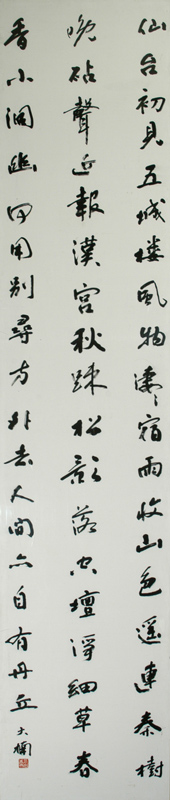 仙台初見五城楼風物凄々宿雨收山色遥連秦樹
晚砧聲近報漢宮秋踈松影落空壇淨細草春
香小洞幽何用別尋方外去人間亦自有丹丘